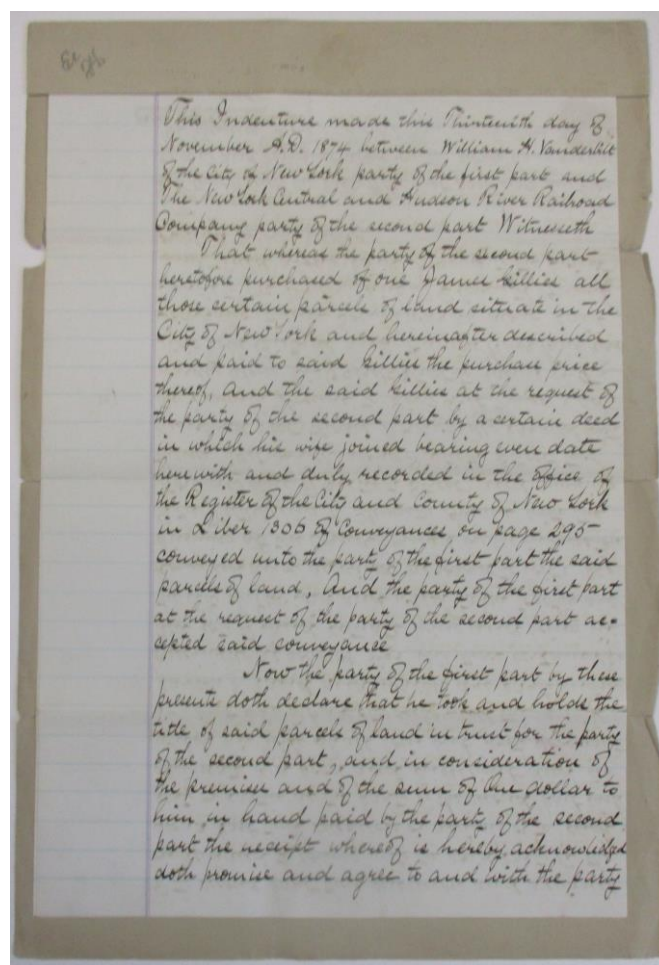 This Indenture made this Thirteenth day of
November A.D. 1874 between William H. Vanderbilt
of the City of New York party of the first part and
The New York Central and Hudson River Railroad
Company party of the second part Witnesseth
That whereas the party of the second part
heretofore purchased of one James Gillies all
those certain parcels of land situate in the
City of New York and hereinafter described
and paid to said Gillies the purchase price
thereof, And the said Gillies at the request of
the party of the second part by a certain deed
in which his wife joined bearing even date
herewith and duly recorded in the office of
the Register of the City and County of New York
in Liber 1306 of Conveyances on page 295
conveyed unto the party of the first part the said
parcels of land, And the party of the first part
at the request of the party of the second part ac-
cepted said conveyance
Now the party of the first part by these
presents doth declare that he took and holds the
title of said parcels of land in trust for the party
of the second part, and in consideration of
the premises and of the sum of One dollar to
him in hand paid by the party of the second
part the receipt whereof is hereby acknowledged
doth promise and agree to and with the party